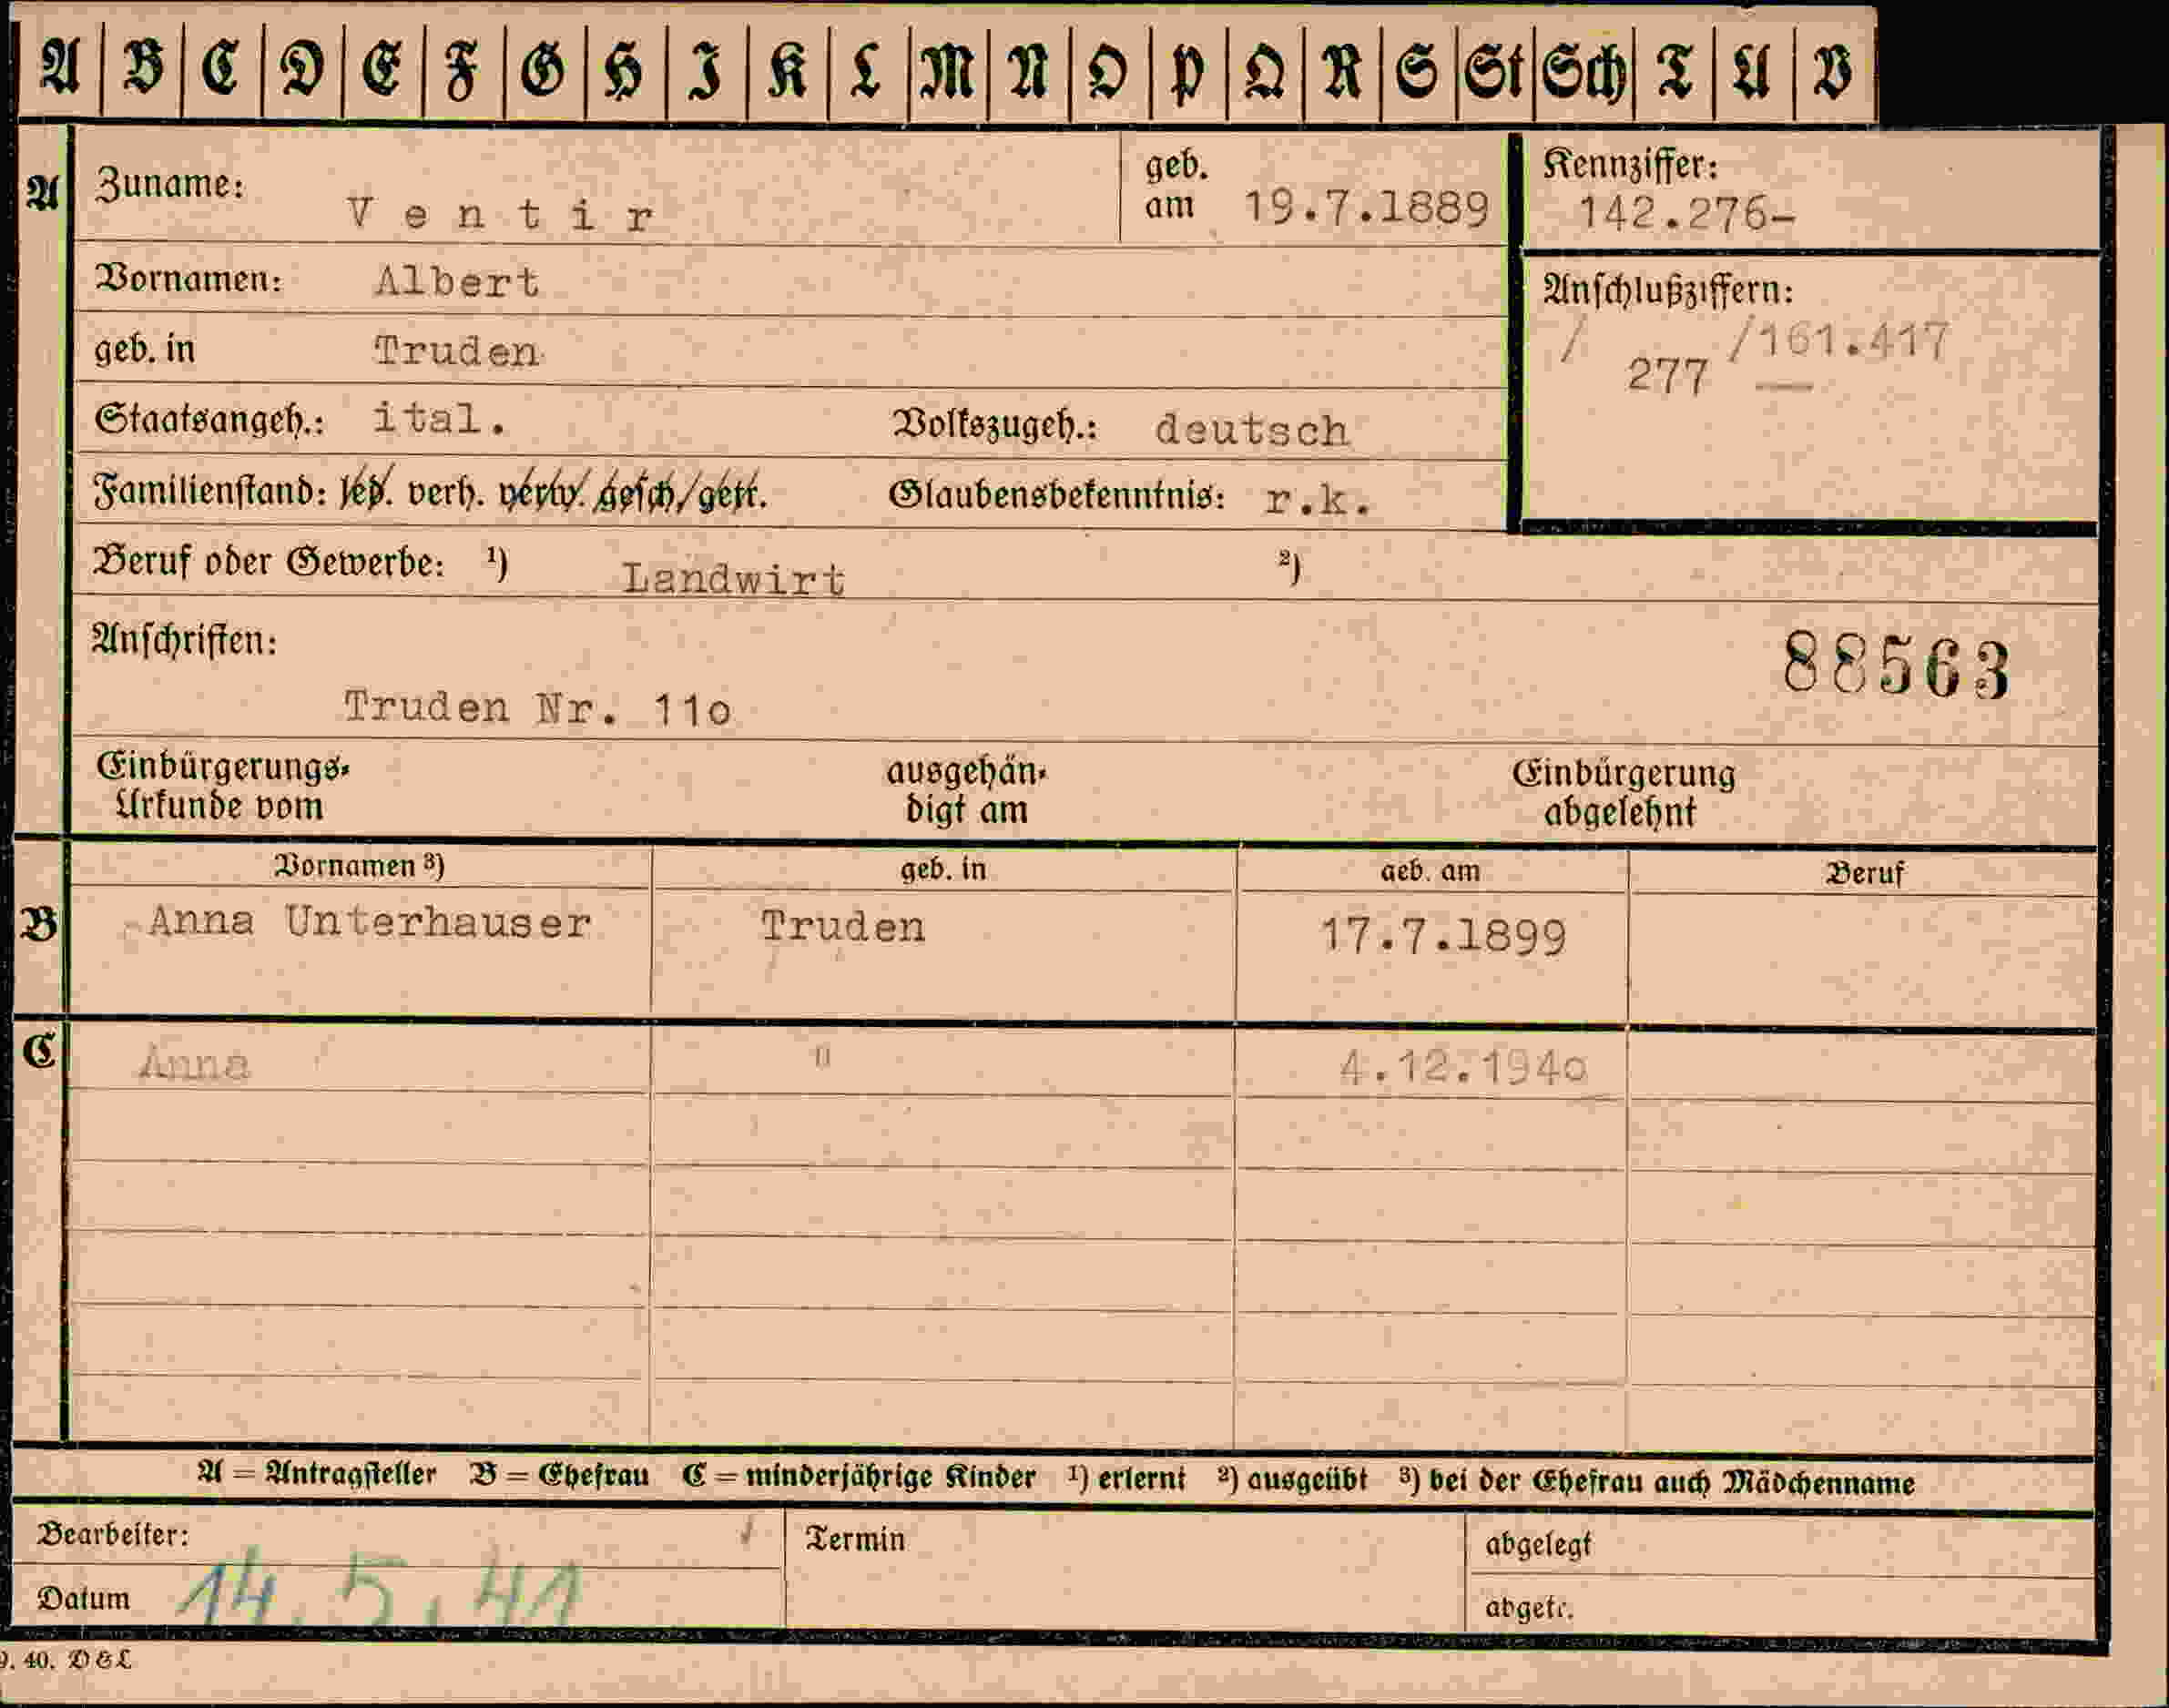 A B C D E F G H I K L M N O P Q R S St Sch T U V
A Zuname: Ventir geb. am 19.7.1889 Kennziffer: 142.276-
Vornamen: Albert Anschlußziffern:
/ 277 /161.417
geb. in Truden
Staatsangeh.: ital. Volkszugeh.: deutsch
Familienstand: led. verh. verw. gesch. getr. Glaubensbekenntnis: r.k.
Beruf oder Gewerbe: ¹) Landwirt ²)
Anschriften: 88563
Truden Nr. 11o
Einbürgerungs- ausgehän- Einbürgerung
Urkunde vom digt am abgelehnt
Vornamen ³) geb. in geb. am Beruf
B Anna Unterhauser Truden 17.7.1899
C Anna " 4.12.194o
A = Antragsteller B = Ehefrau C = minderjährige Kinder ¹) erlernt ²) ausgeübt ³) bei der Ehefrau auch Mädchenname
Bearbeiter: Termin abgelegt
Datum 14.5.41 abgetr.
9. 40. D & L